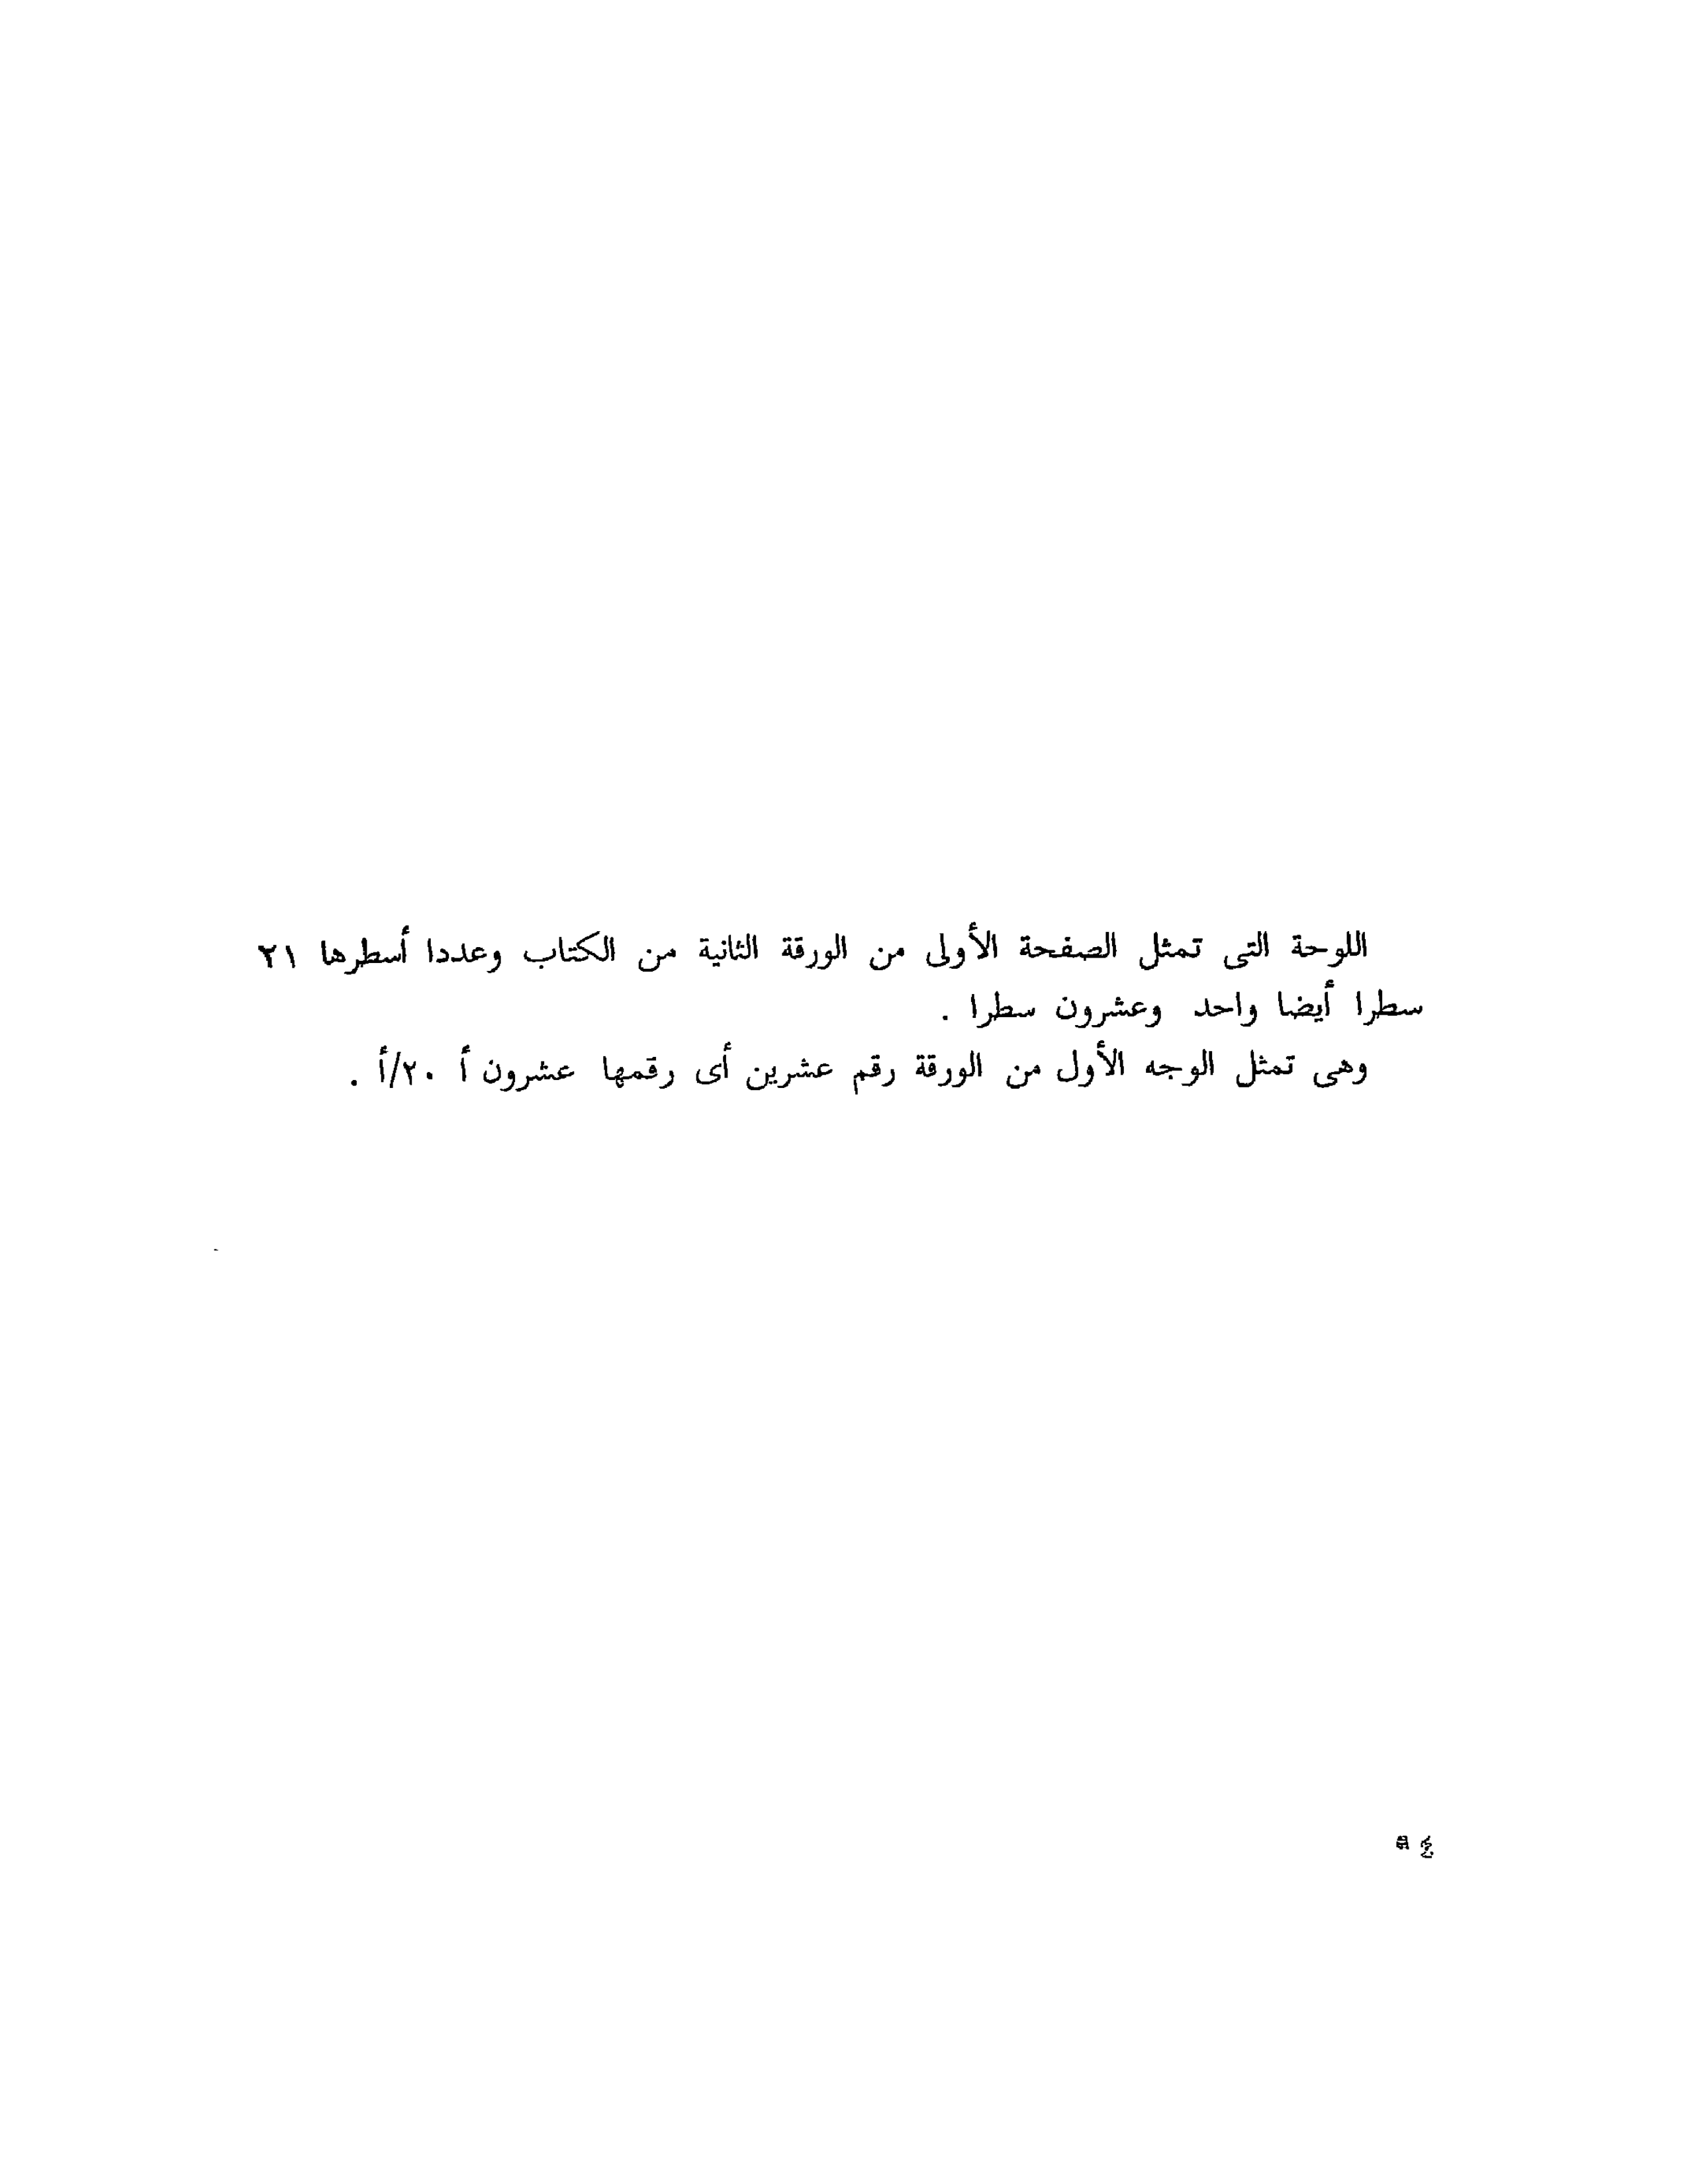 اللوحة التى تمثل الصفحة الأولى من الورقة الثانية من الكتاب وعددا أسطرها ٢١
سطرا أيضا واحد وعشرون سطرا .
وهى تمثل الوجه الأول من الورقة رقم عشرين أى رقمها عشرون أ ٢٠/أ .